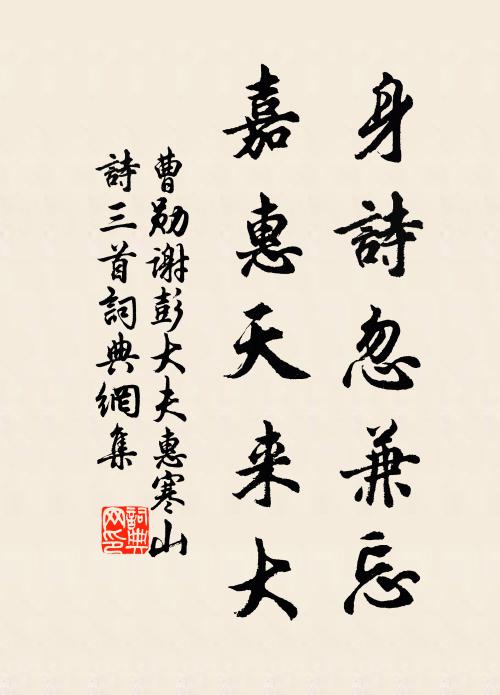 身詩忽兼忘
嘉惠天来大
曹勛谢彭大夫惠寒山
詩三首詞典網集
詞典
网印